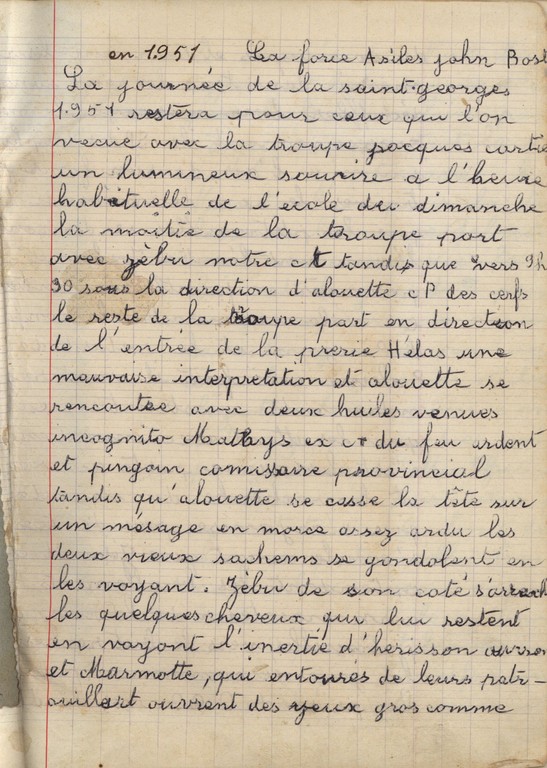 en 1951 La force Asiles john Bost
La journée de la saint-georges
1951 restera pour ceux qui l'on
vecue avec la troupe jacques cartie
un lumineux sourire a l'heure
habituelle de l'école du dimanche
la moitié de la troupe part
avec zèbu notre ct tandis que vers 9h
30 sous la direction d'alouette cP des cerfs
le reste de la troupe part en direction
de l'entrée de la prerie Hélas une
mauvaise interpretation et alouette se
rencoutée avec deux huiles venues
incognito Mathys ex du feu
et pingoin comissaire provincial
tandis qu'alouette se casse la tête sur
un mésage en morce assez ardu les
deux vieux sachems se gondolent en
les voyant. Zèbu de son coté s'arrach
les quelques cheveux qui lui restent
en voyant l'inertie d'herisson ourson
et Marmotte, qui entourés de leurs patr-
ouillart ouvrent des yeux gros comme